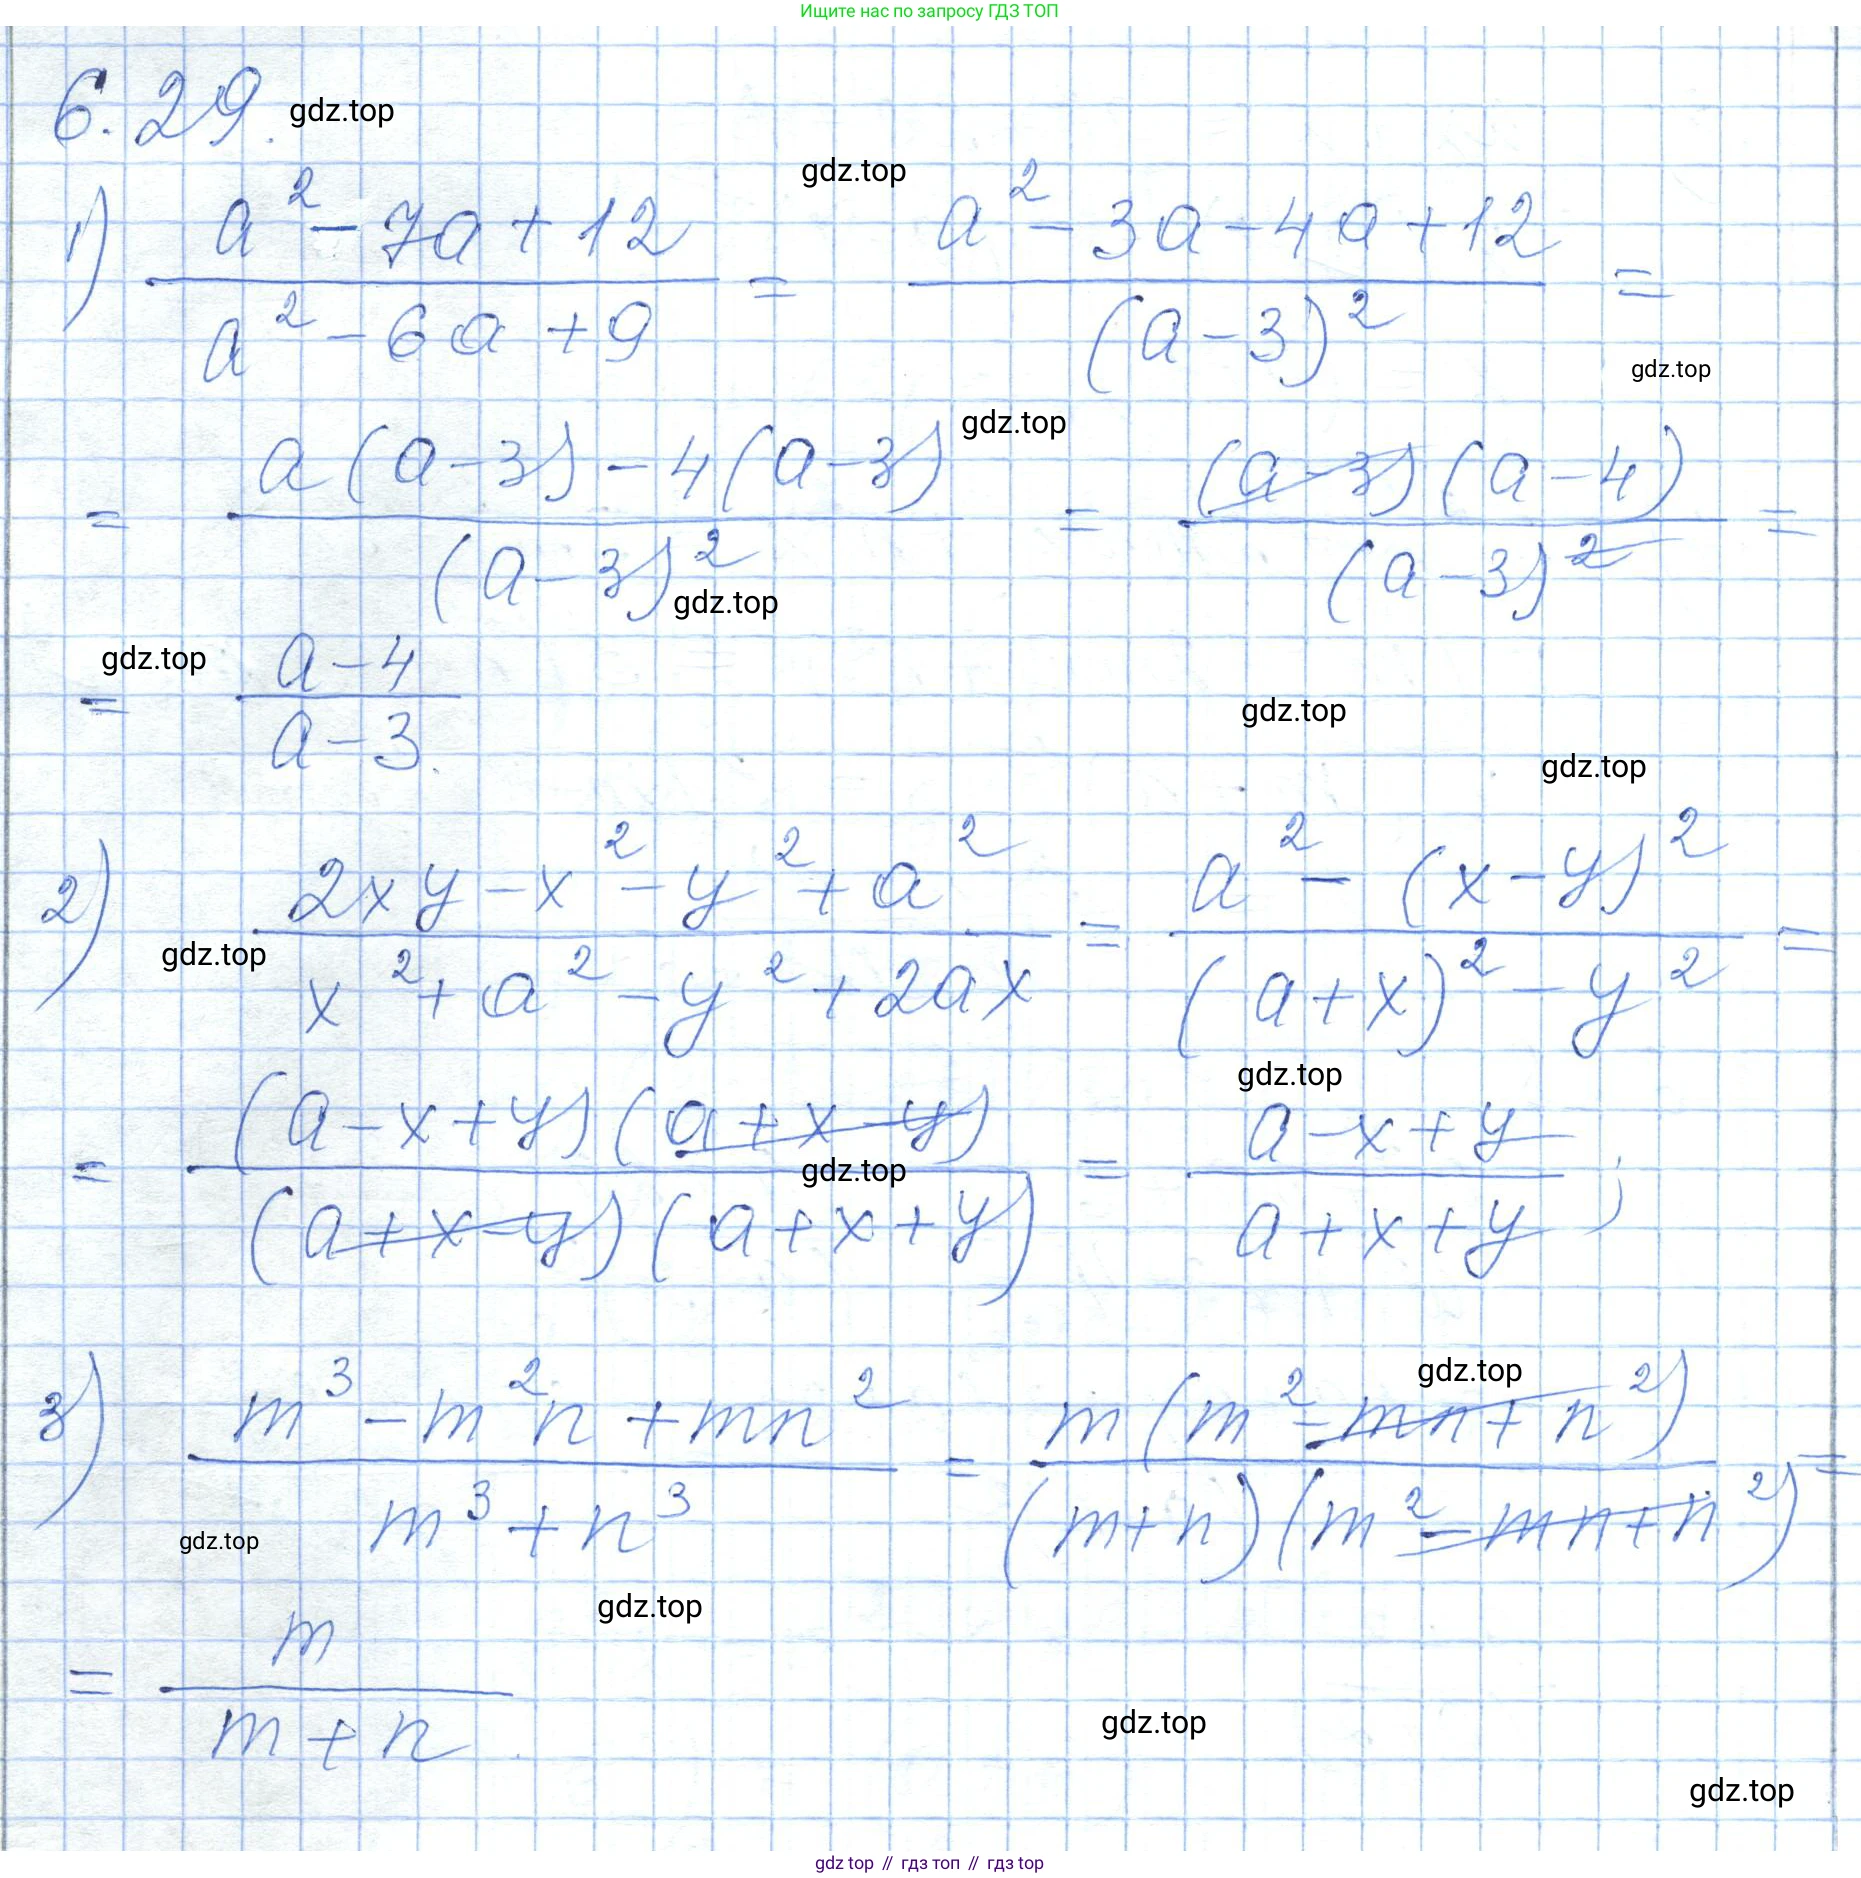 Ищите нас по запросу ГДЗ ТОП
6.29. gdz.top
gdz.top
1) (a² - 7a + 12)/(a² - 6a + 9) = (a² - 3a - 4a + 12)/(a - 3)² =
gdz.top
gdz.top
= (a(a - 3) - 4(a - 3))/(a - 3)² = ((a - 3)(a - 4))/(a - 3)² =
gdz.top
gdz.top
= (a - 4)/(a - 3).
gdz.top
gdz.top
2) (2xy - x² - y² + a²)/(x² + a² - y² + 2ax) = (a² - (x - y)²)/((a + x)² - y²) =
gdz.top
gdz.top
= ((a - x + y)(a + x - y))/((a + x - y)(a + x + y)) = (a - x + y)/(a + x + y);
gdz.top
gdz.top
3) (m³ - m²n + mn²)/(m³ + n³) = (m(m² - mn + n²))/((m + n)(m² - mn + n²)) =
gdz.top
gdz.top
= m/(m + n).
gdz.top
gdz.top
gdz top // гдз топ // гдз top